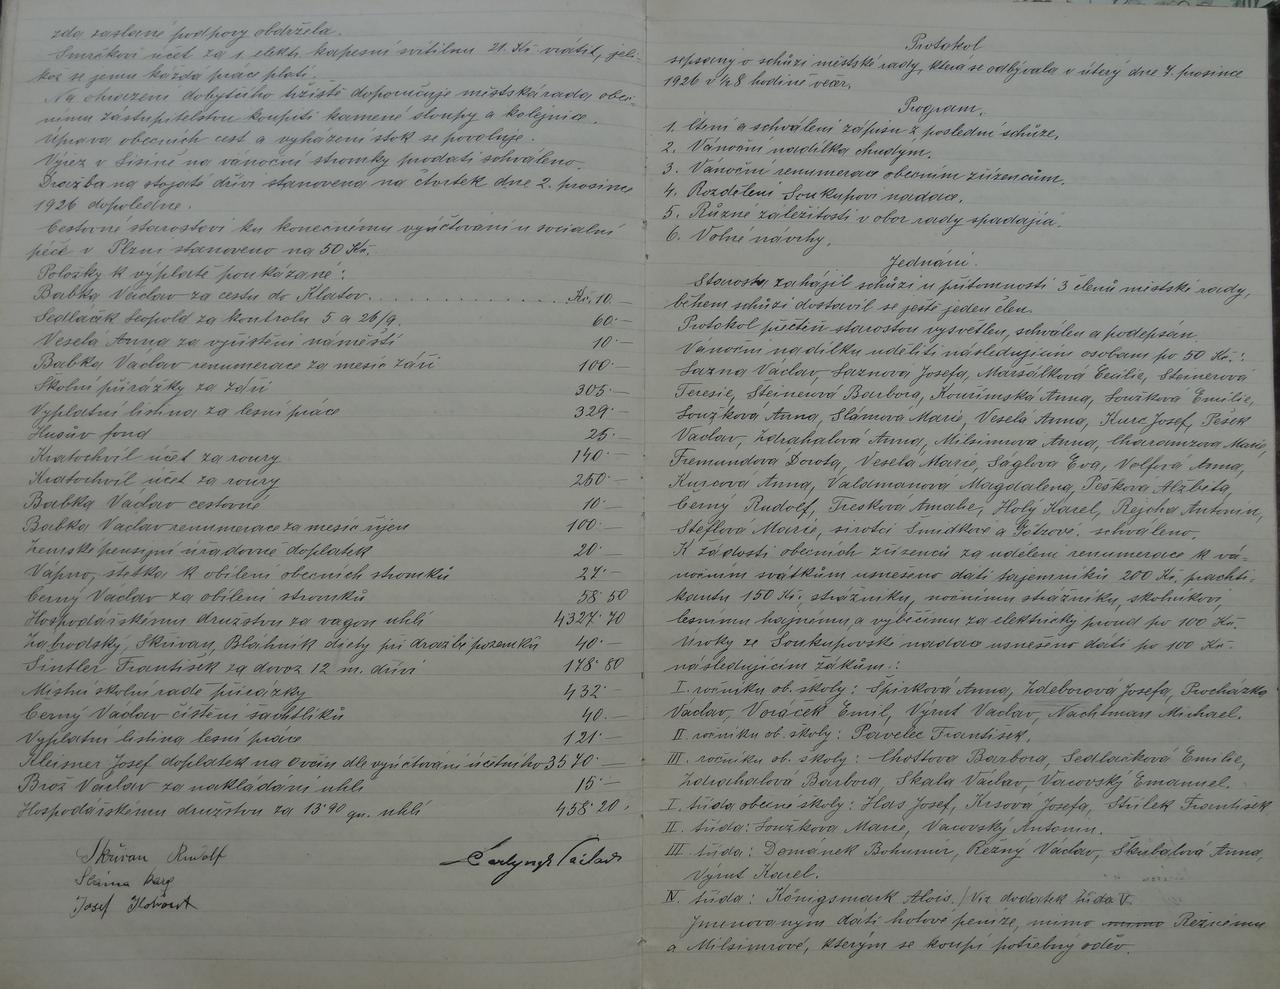 zda zaslané podpory obdržela.
Smrčkovi účet za 1 elektr. kapesní svítilnu 21 Kč vrátit, jeli-
kož se jemu každá práce platí.
Na ohrazení dobytčího tržiště doporučuje městská rada obec-
nímu zastupitelstvu koupiti kamené sloupy a kolejnice.
Úprava obecních cest a vyházení stok se povoluje.
Výřez v Lisině na vánoční stromky prodati schváleno.
Dražba na stojaté dříví stanovena na čtvrtek dne 2. prosince
1926 dopoledne.
Cestovné starostovi ku konečnému vyúčtování u socialní
péče v Plzni stanoveno na 50 Kč.
Položky k výplatě poukázané:
Babka Václav za cestu do Klatov. . . . . . . . . . . . . Kč 10.—
Sedláček Leopold za kontrolu 5 a 26/9. 60.—
Veselá Anna za vyčištění náměstí 10.—
Babka Václav renumerace za měsíc září 100.—
Školní přirážky za září 305.—
Výplatní listina za lesní práce 329.—
Husův fond 25.—
Kratochvíl účet za roury 140.—
Kratochvíl účet za roury 250.—
Babka Václav cestovné 10.—
Babka Václav renumerace za měsíc říjen 100.—
Zemské pensijní úřadovně doplatek 20.—
Vápno, štětka k obílení obecních stromků 27.—
Černý Václav za obílení stromků 58.50
Hospodářskému družstvu za vagon uhlí 4327.70
Zabrodský, Skřivan, Bláhník diety při dražbě pozemků 40.—
Šintler František za dovoz 12 m. dříví 178.80
Místní školní radě přirážky 432.—
Černý Václav čištění šachtliků 40.—
Výplatní listina lesní práce 121.—
Kleisner Josef doplatek na ovčín dle vyúčtování účetního 3570.—
Brož Václav za nakládání uhlí 15.—
Hospodářskému družstvu za 13.90 qu. uhlí 458.20.
Skřivan Rudolf
Sláma
Josef
Protokol
sepsaný o schůzi městské rady, která se odbývala v úterý dne 7. prosince
1926 v ½8 hodině večer.
Program.
1. Čtení a schválení zápisu z poslední schůze.
2. Vánoční nadílka chudým.
3. Vánoční renumerace obecním zřízencům.
4. Rozdělení Soukupovi nadace.
5. Různé záležitosti v obor rady spadající.
6. Volné návrhy.
Jednání.
Starosta zahájil schůzi u přítomnosti 3 členů městské rady,
během schůze dostavil se ještě jeden člen.
Protokol přečten starostou vysvětlen, schválen a podepsán.
Vánoční nadílku uděliti následujícím osobam po 50 Kč.:
Sazna Václav, Saznova Josefa, Maršálková Cecilie, Steinerová
Teresie, Steinerová Barbora, Kouřimská Anna, Loužkova Emilie,
Loužkova Anna, Slámová Marie, Veselá Anna, Kurc Josef, Pešek
Václav, Zdrahalová Anna, Milsimrova Anna, Charamzova Marie,
Tremundova Dorota, Veselá Marie, Ságlova Eva, Volfová Anna,
Kurcova Anna, Valdmanová Magdalena, Pešková Alžběta,
Černý Rudolf, Tresková Amalie, Holý Karel, Rejcha Antonín,
Steflová Marie, sirotci Smidkové a Götzové. schváleno.
K žádosti obecních zřízenců za udělení renumerace k vá-
nočním svátkům usnešeno dáti tajemníku 200 Kč, prakti-
kantu 150 Kč, strážníku, nočnímu strážníku, školníkovi,
lesnímu hajnému, a výběčímu za elektrický proud po 100 Kč.
Úroky ze Soukupovské nadace usnešeno dáti po 100 Kč.
následujícím žákům.:
I. ročníku ob. školy: Špirková Anna, Zdeborová Josefa, Procházka
Václav, Voráček Emil, Výrut Václav, Nachtman Michael.
II. ročníku ob. školy: Pavelec František.
III. ročníku ob. školy: Chottova Barbora, Sedlačková Emilie,
Zdrahalová Barbora, Skala Václav, Vacovský Emanuel.
I. třída obecné školy: Has Josef, Krsova Josefa, Střílek František
II. třída: Loužkova Marie, Vacovský Antonín.
III. třída: Domanek Bohumír, Řezný Václav, Škubalová Anna,
Výrut Karel.
IV. třída: Königsmark Alois. / Viz dodatek třída V.
Jmenovaným dáti hotové peníze, mimo mimo Řeznému
a Milsimrové, kterým se koupí potřebný oděv.